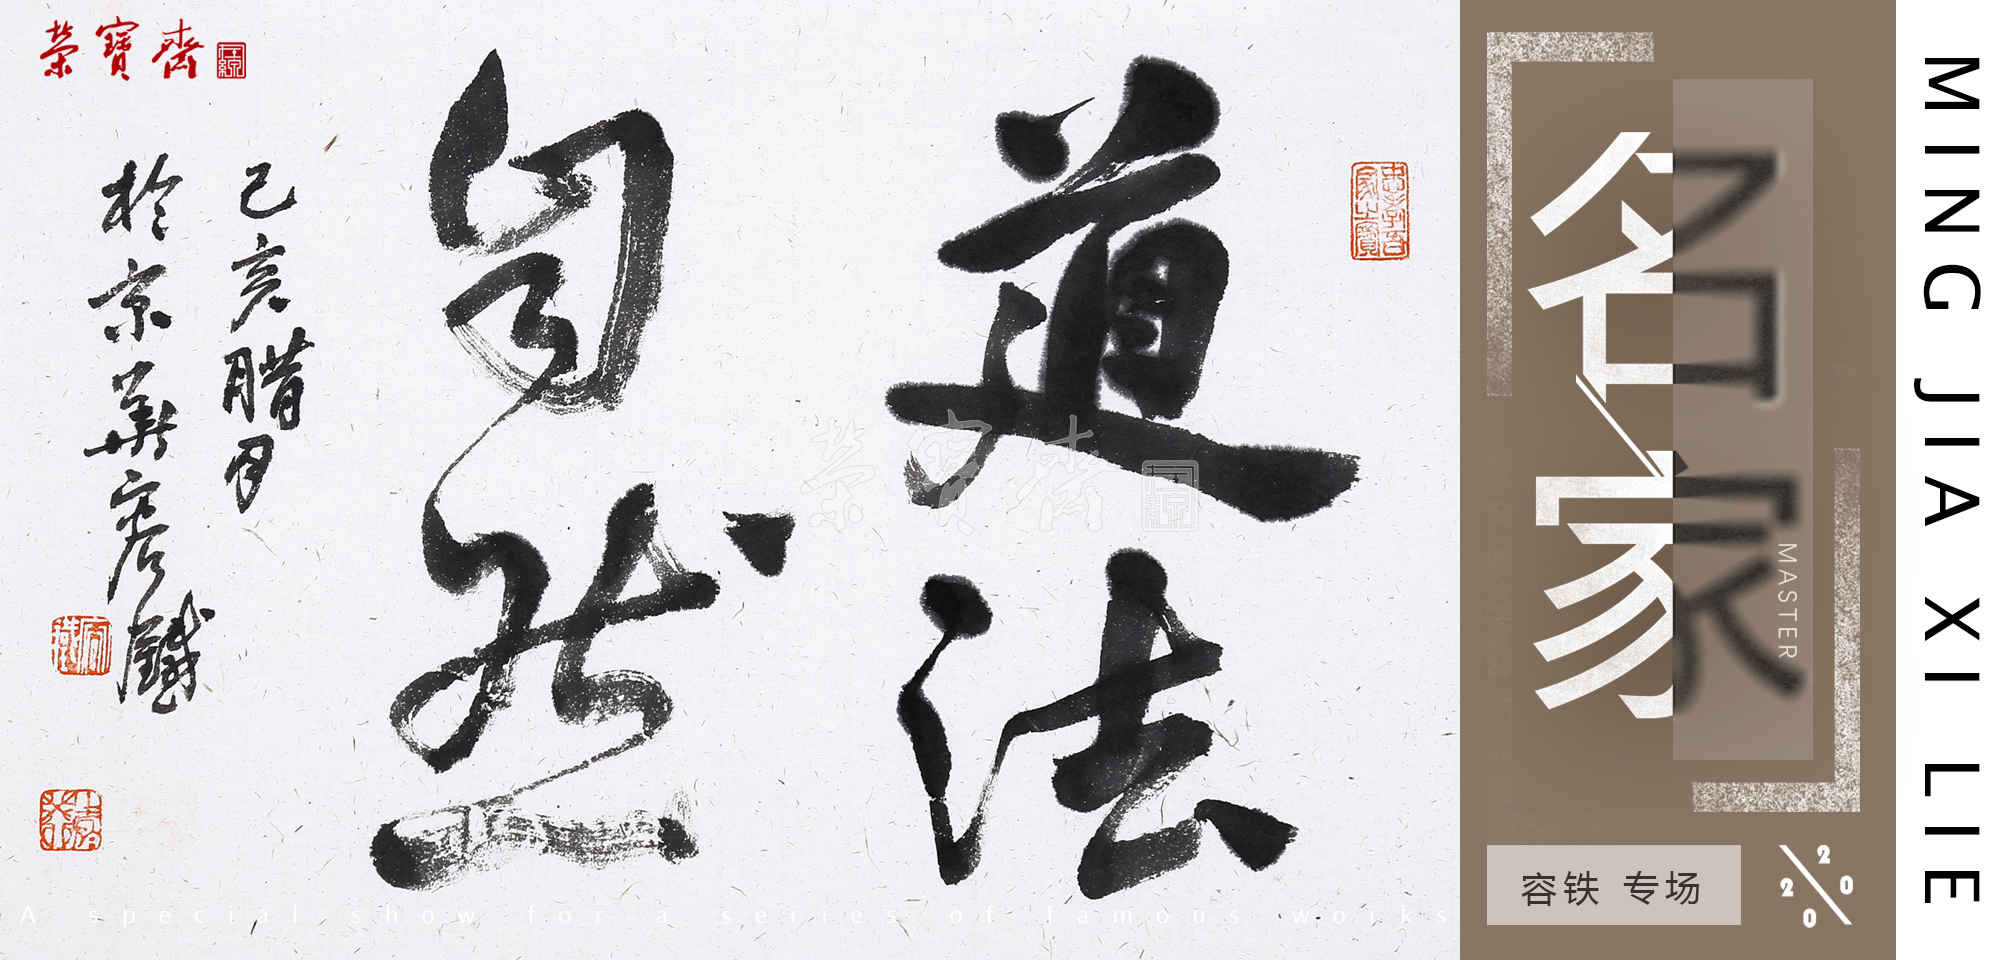 榮寶齋
道法
自然
己亥腊月
於京華容鐵
榮寶齋
A special show for a series of famous works
名家
MASTER
容铁 专场
2020
MING JIA XI LIE